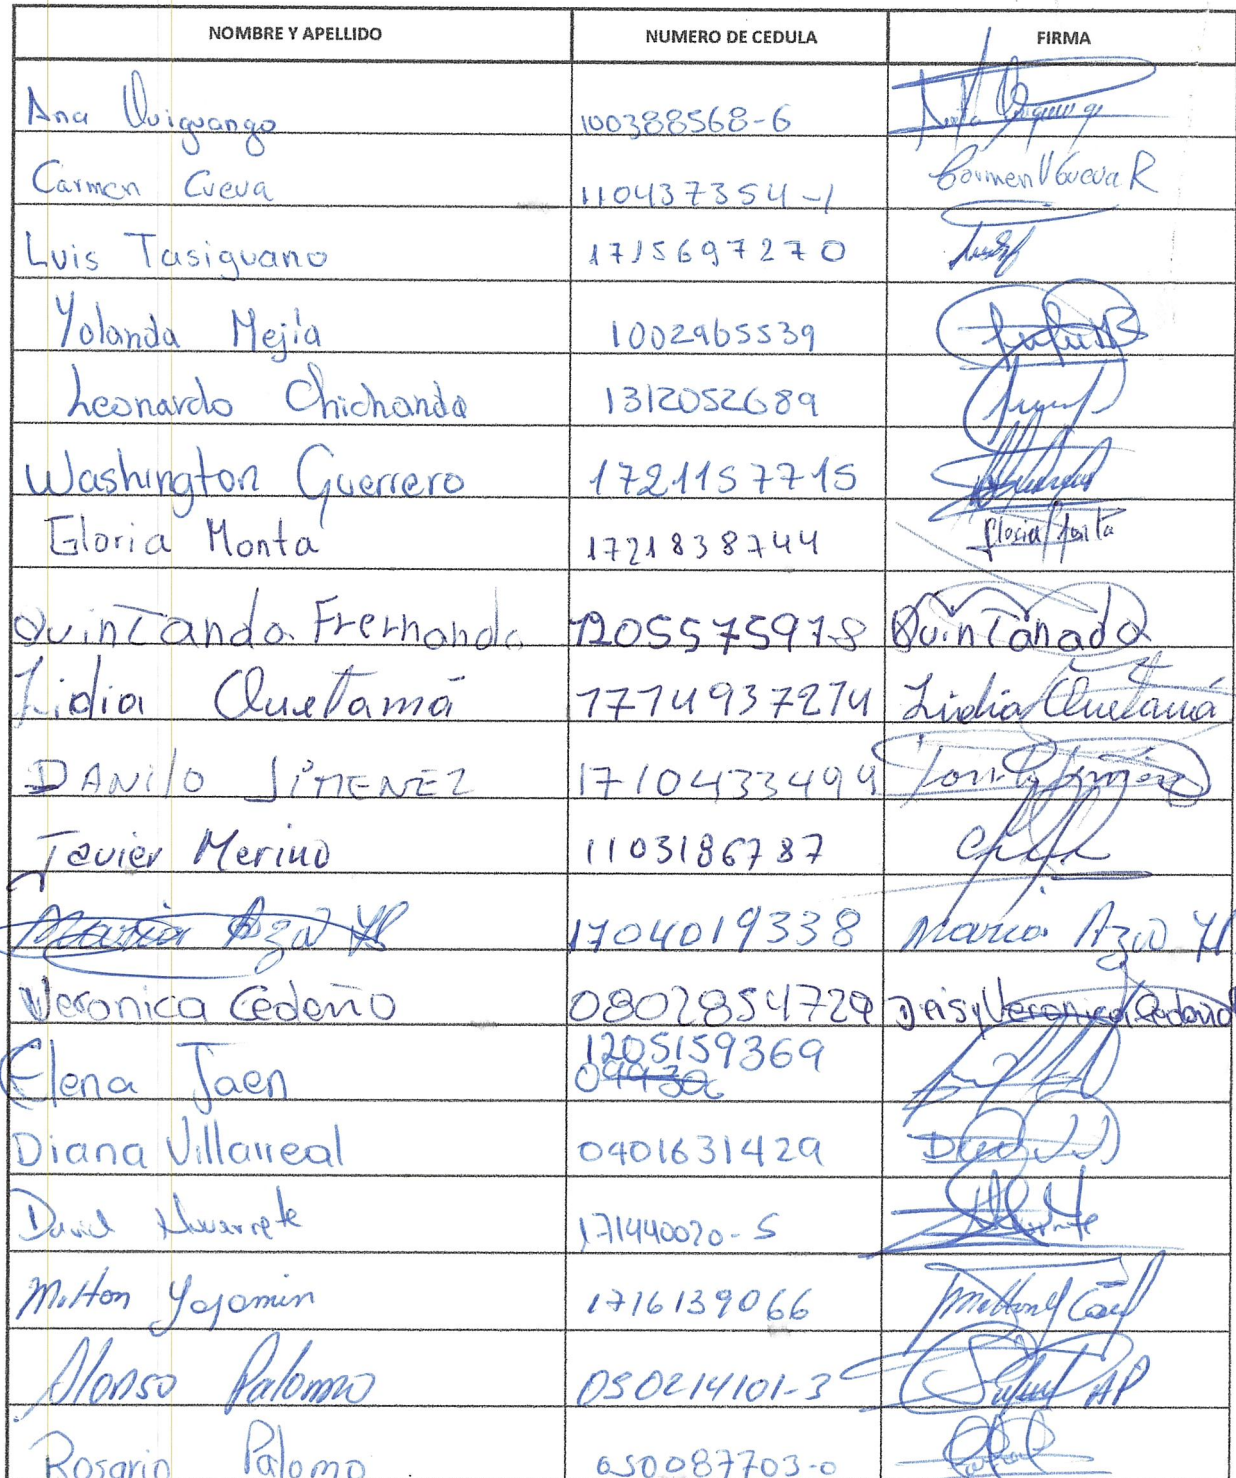 NOMBRE Y APELLIDO NUMERO DE CEDULA FIRMA
Ana Quiguango 100388568-6
Carmen Cueva 110437354-1 Carmen V Cueva R
Luis Tasiguano 1715697270
Yolanda Mejía 1002965539
Leonardo Chichanda 1312052689
Washington Guerrero 1721157715
Gloria Monta 1721838744 Gloria Monta
Quintando Frernando 1205575978 Quintanado
Lidia Quetamá 1714937214 Lidia Quetamá
DANilO JiMENEZ 1710433499
Javier Merino 1103186787
Maria Aza 1704019338 Maria Aza
Veronica Cedeño 0802854729 Deisy Veronica Cedeño
Elena Jaen 1205159369
Diana Villarreal 0401631429
David Navarrete 171440020-5
Milton Yajamin 1716139066
Alonso Palomo 050214101-3 AP
Rosario Palomo 050087703-0